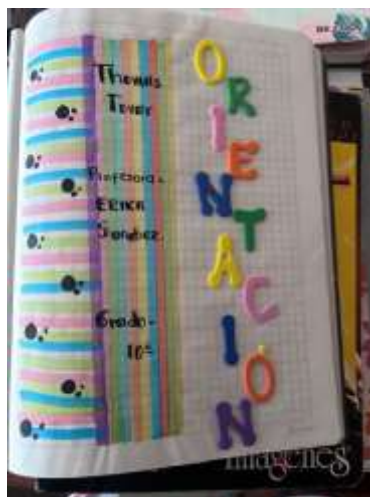 Thomas
Tovar
Profesora -
ERICA
Sanchez
Grado -
10°
ORIENTACIÓN
imagenes